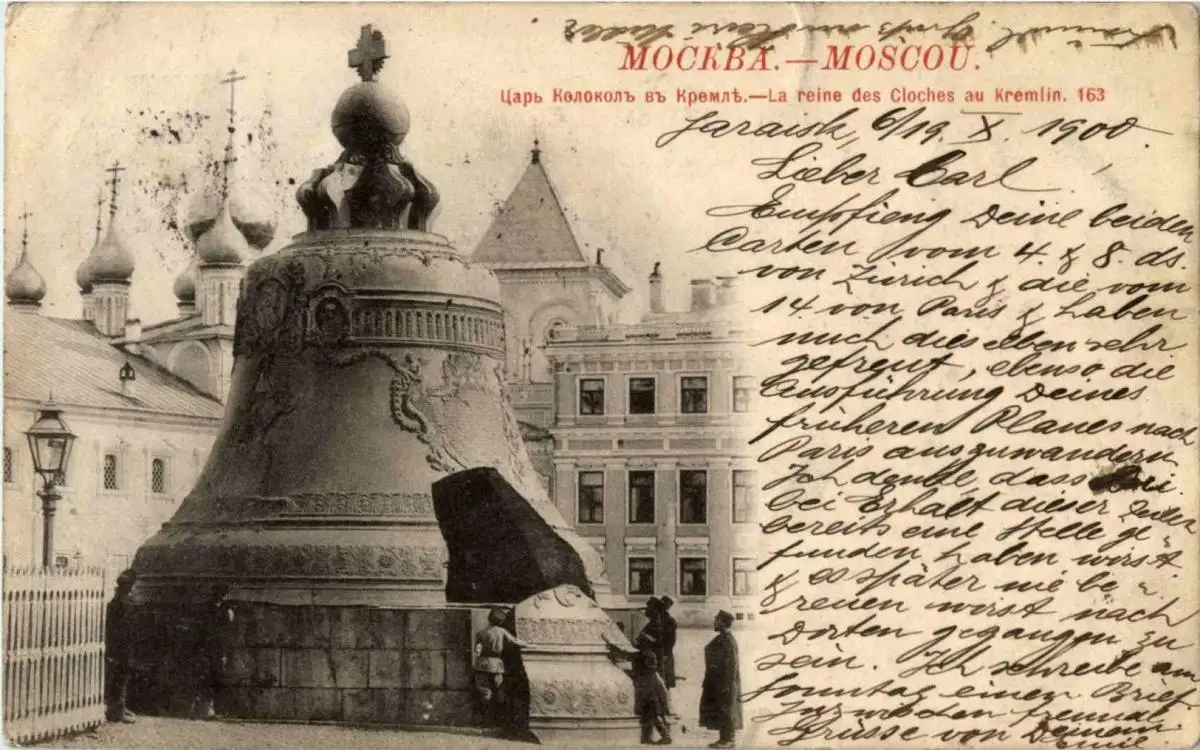 МОСКВА.—MOSCOU.
Царь Колоколъ въ Кремлѣ.—La reine des Cloches au Kremlin. 163
Jaraisk, 6/19 X. 1900
Lieber Carl!
Empfieng Deine beiden
Carten vom 4. & 8. ds.
von Zürich & die vom
14 von Paris & haben
mich dieselben sehr
gefreut, ebenso die
Ausführung Deines
früheren Planes nach
Paris auszuwandern.
Ich denke, dass
bei Erhalt dieser Zeilen
bereits eine Stelle ge„
funden haben wirst
& es später nie be„
reuen wirst nach
dorten gegangen zu
sein. Ich schreibe am
Sonntag einen Brief.
Inzwischen freundl.
Grüsse von Deinem